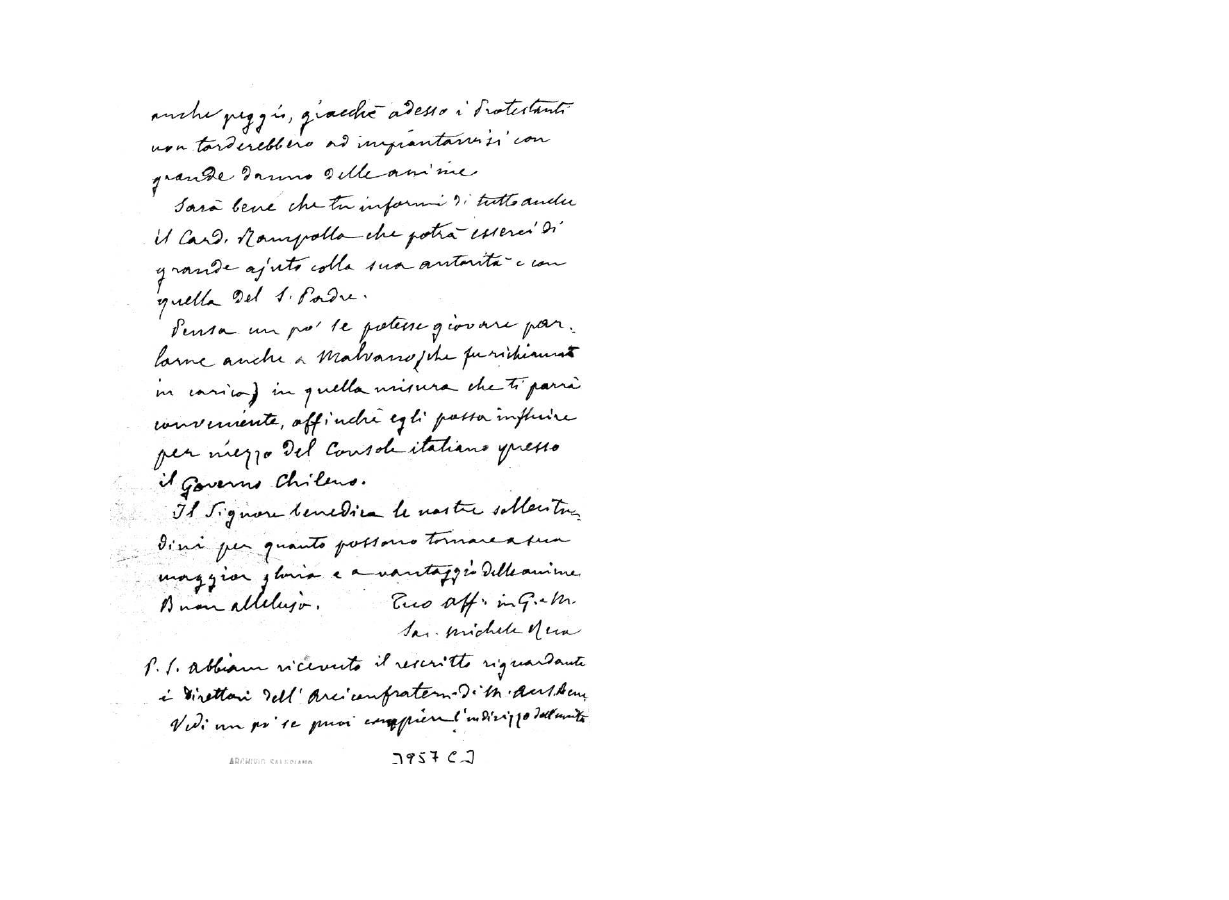 anche peggio, giacchè adesso i Protestanti
non tarderebbero ad impiantarvisi con
grande danno delle anime
Sarà bene che tu informi di tutto anche
il Card. Rampolla che potrà esserci di
grande ajuto colla sua autorità e con
quella del S. Padre.
Pensa un po' se potesse giovare par-
larne anche a Malvano (che fu richiamato
in carica) in quella misura che ti parrà
conveniente, affinchè egli possa influire
per mezzo del Console italiano presso
il Governo Chileno.
Il Signore benedica le nostre sollecitu-
dini per quanto possono tornare a sua
maggior gloria e a vantaggio delle anime.
Buon alleluja. Tuo aff. in G. e M.
Sac. Michele Rua
P. S. Abbiam ricevuto il rescritto riguardante
i Direttori dell' Arciconfratern. di M. Aus.
Vedi un po' se puoi compiere l'indirizzo dell'unito
ARCHIVIO SALESIANO
3957 C